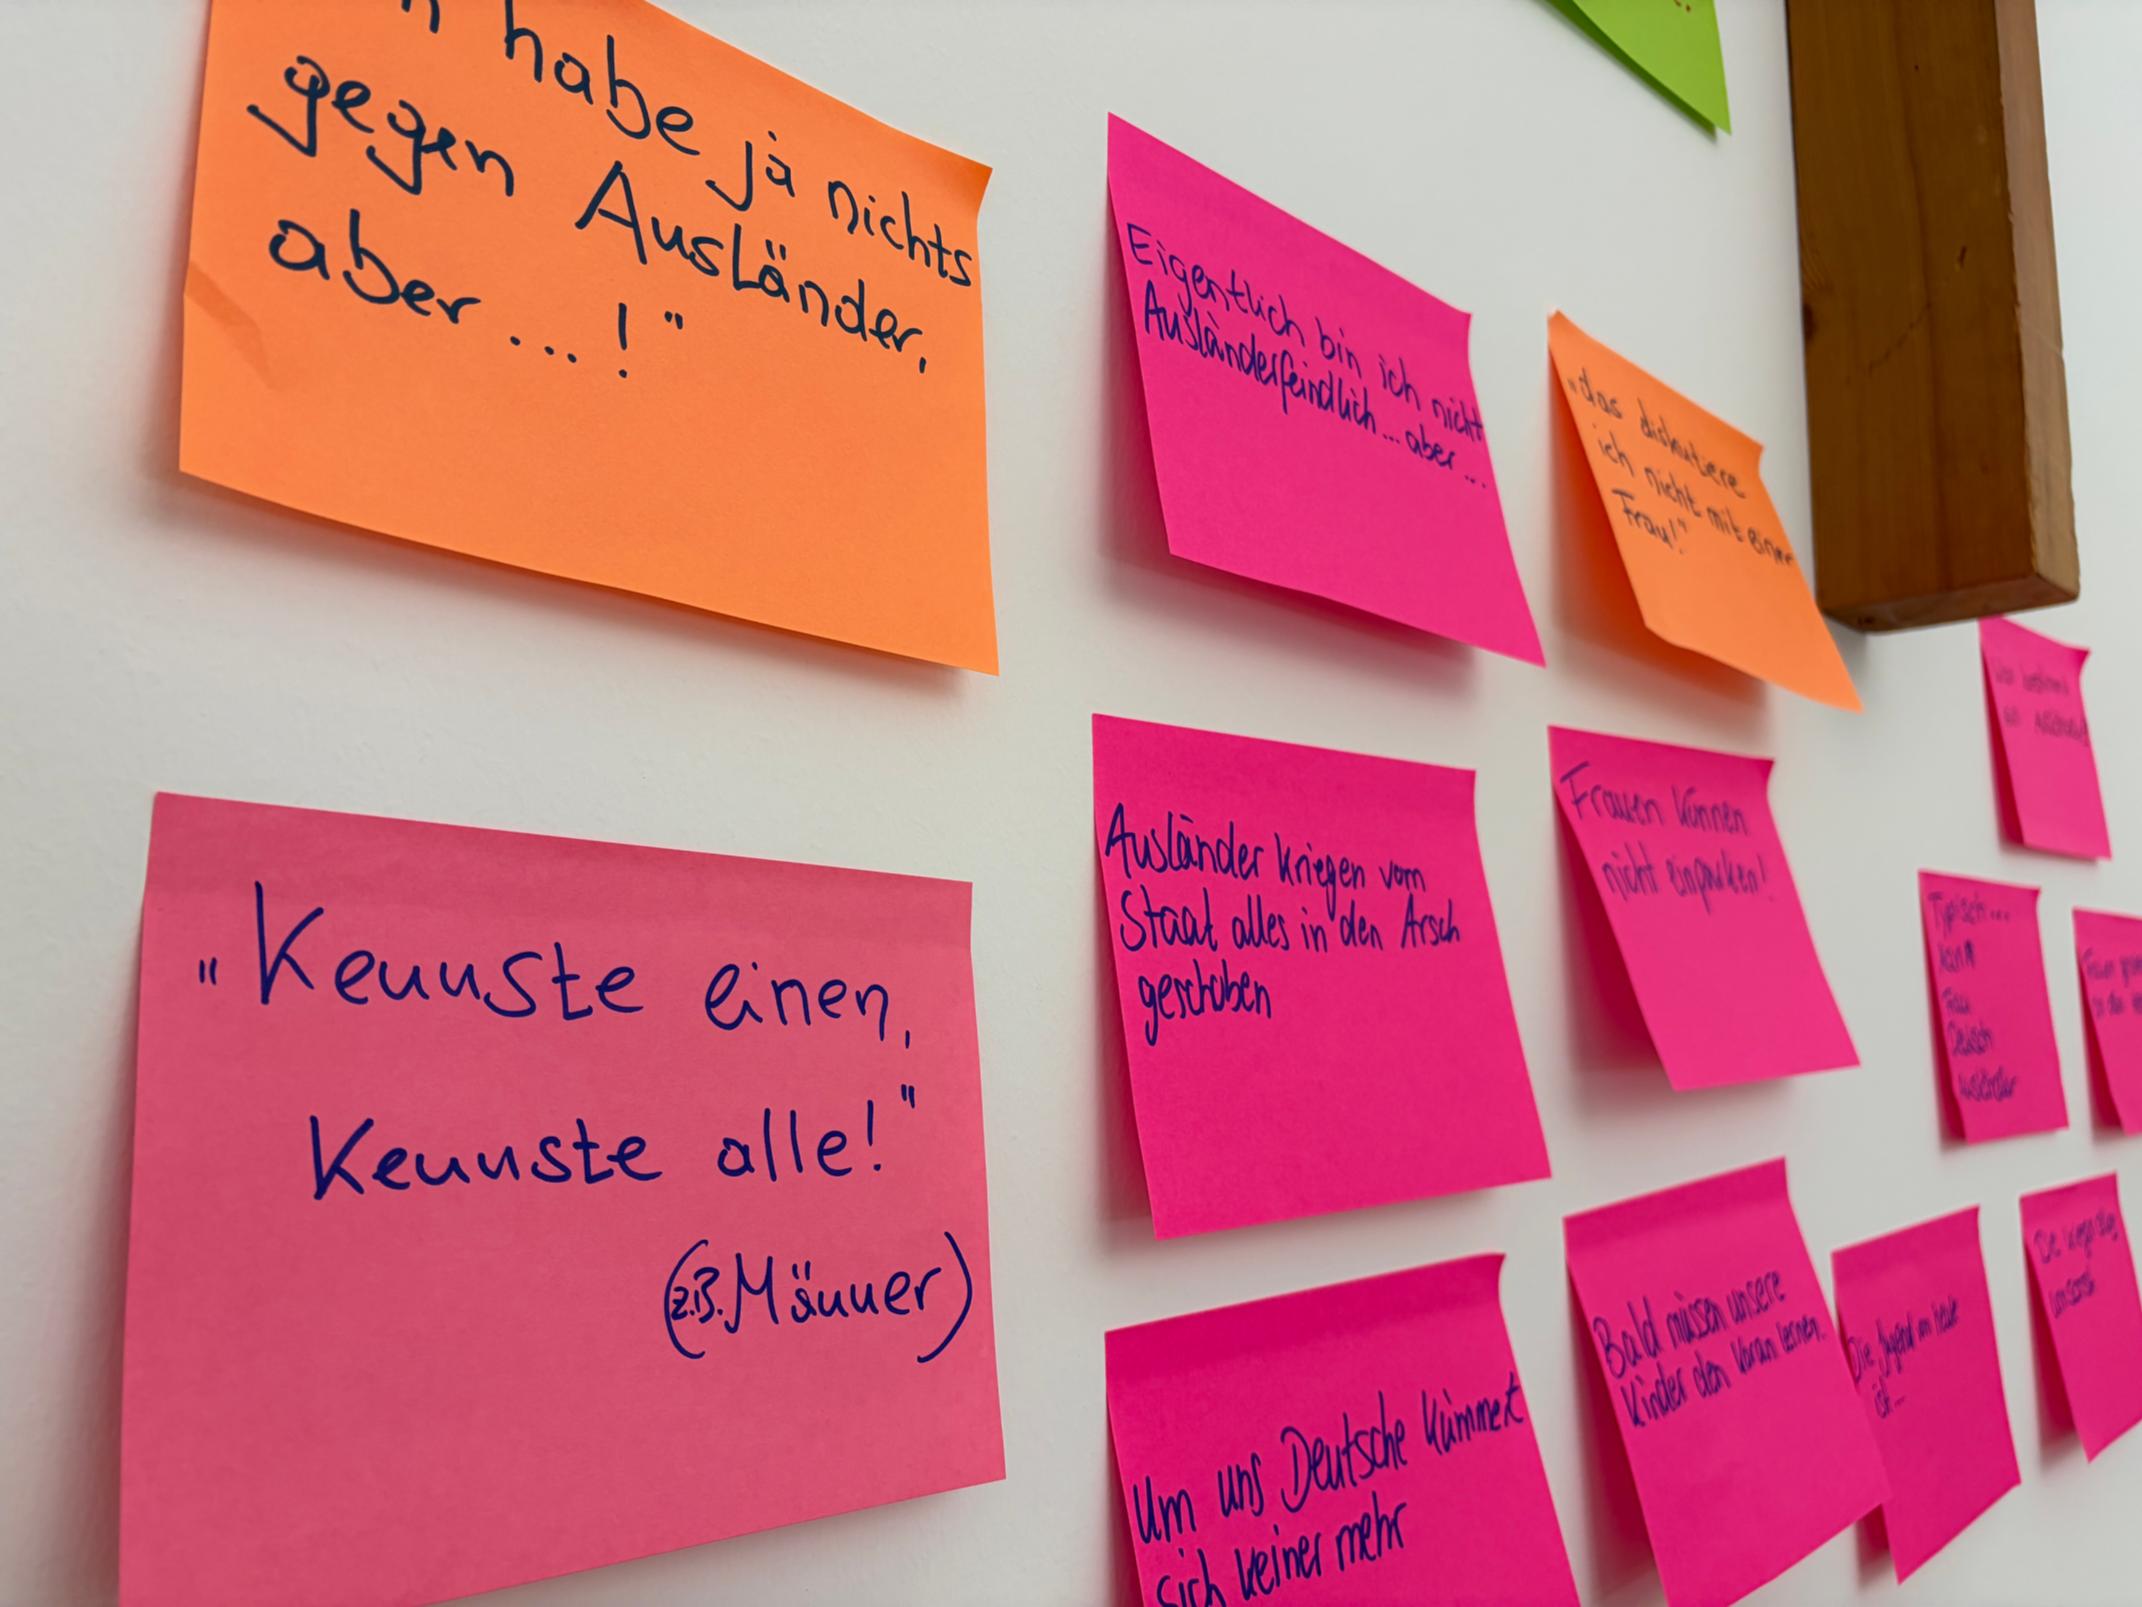 habe ja nichts
gegen Ausländer,
aber...!"
Eigentlich bin ich nicht
Ausländerfeindlich...aber...
„das diskutiere
ich nicht mit einer
Frau!"
"Kennste einen,
Kennste alle!"
(z.B. Männer)
Ausländer kriegen vom
Staat alles in den Arsch
geschoben
Frauen können
nicht einparken!
Typisch...
Frau
Deutsch
Ausländer
Um uns Deutsche kümmert
sich keiner mehr
Bald müssen unsere
Kinder den Koran lernen.
Die Jugend von heute
ist...
Die kriegen alles
umsonst